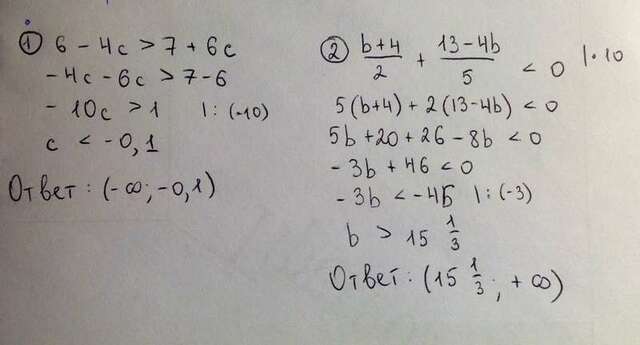 ① 6 - 4c > 7 + 6c
-4c - 6c > 7 - 6
- 10c > 1 |: (-10)
c < -0,1
Ответ: (-∞; -0,1)
② b+4/2 + 13-4b/5 < 0 |·10
5(b+4) + 2(13-4b) < 0
5b + 20 + 26 - 8b < 0
- 3b + 46 < 0
- 3b < -46 |: (-3)
b > 15 1/3
Ответ: (15 1/3; +∞)